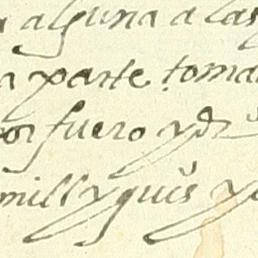 alguna a las
parte toma
por fuero y
mill y qui̅s y